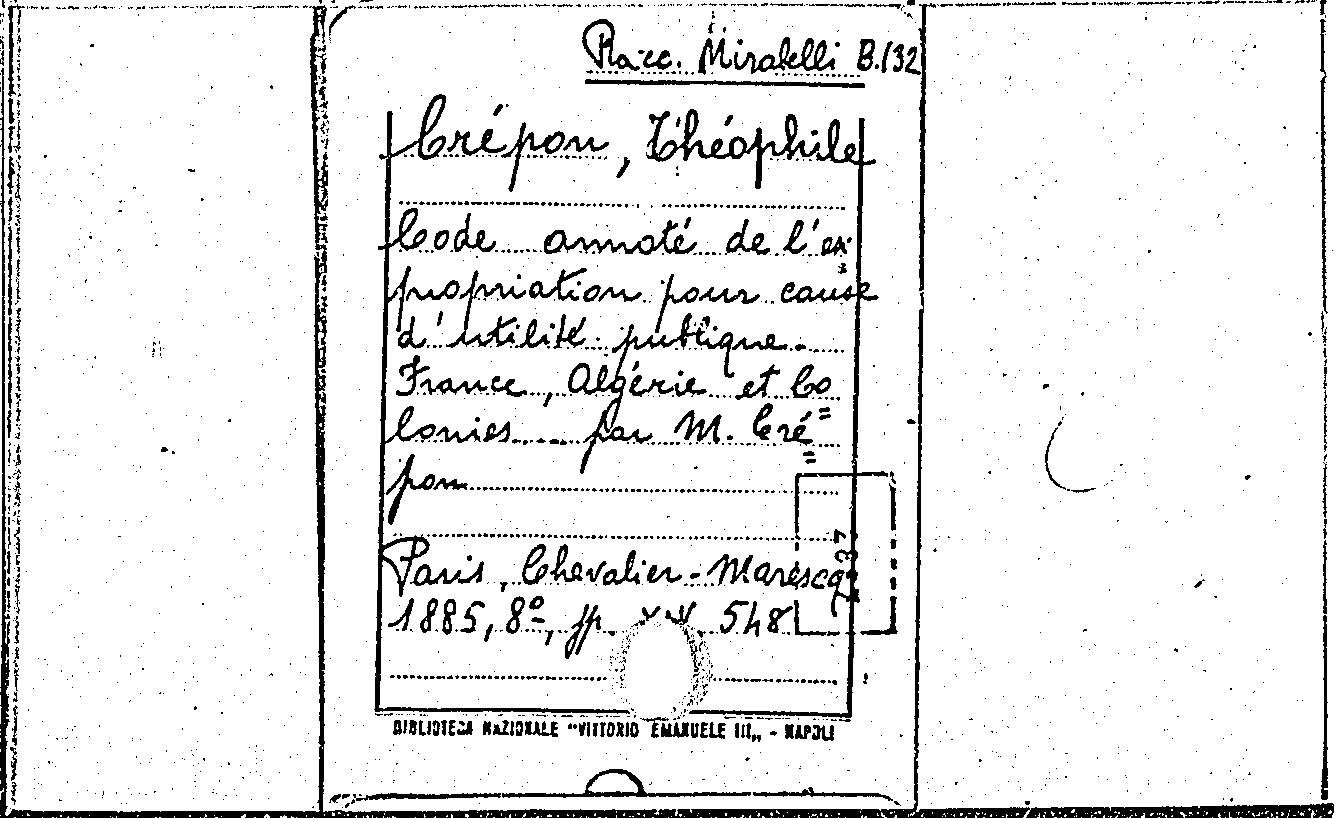 Racc. Mirabelli B.132
Crépon, Théophile
Code annoté de l'ex=
propriation pour cause
d'utilité publique.
France, Algérie et Co=
lonies.... par M. Cré=
pon
Paris, Chevalier-Marescq
1885, 8º, pp. 548
BIBLIOTECA NAZIONALE "VITTORIO EMANUELE III„ - NAPOLI